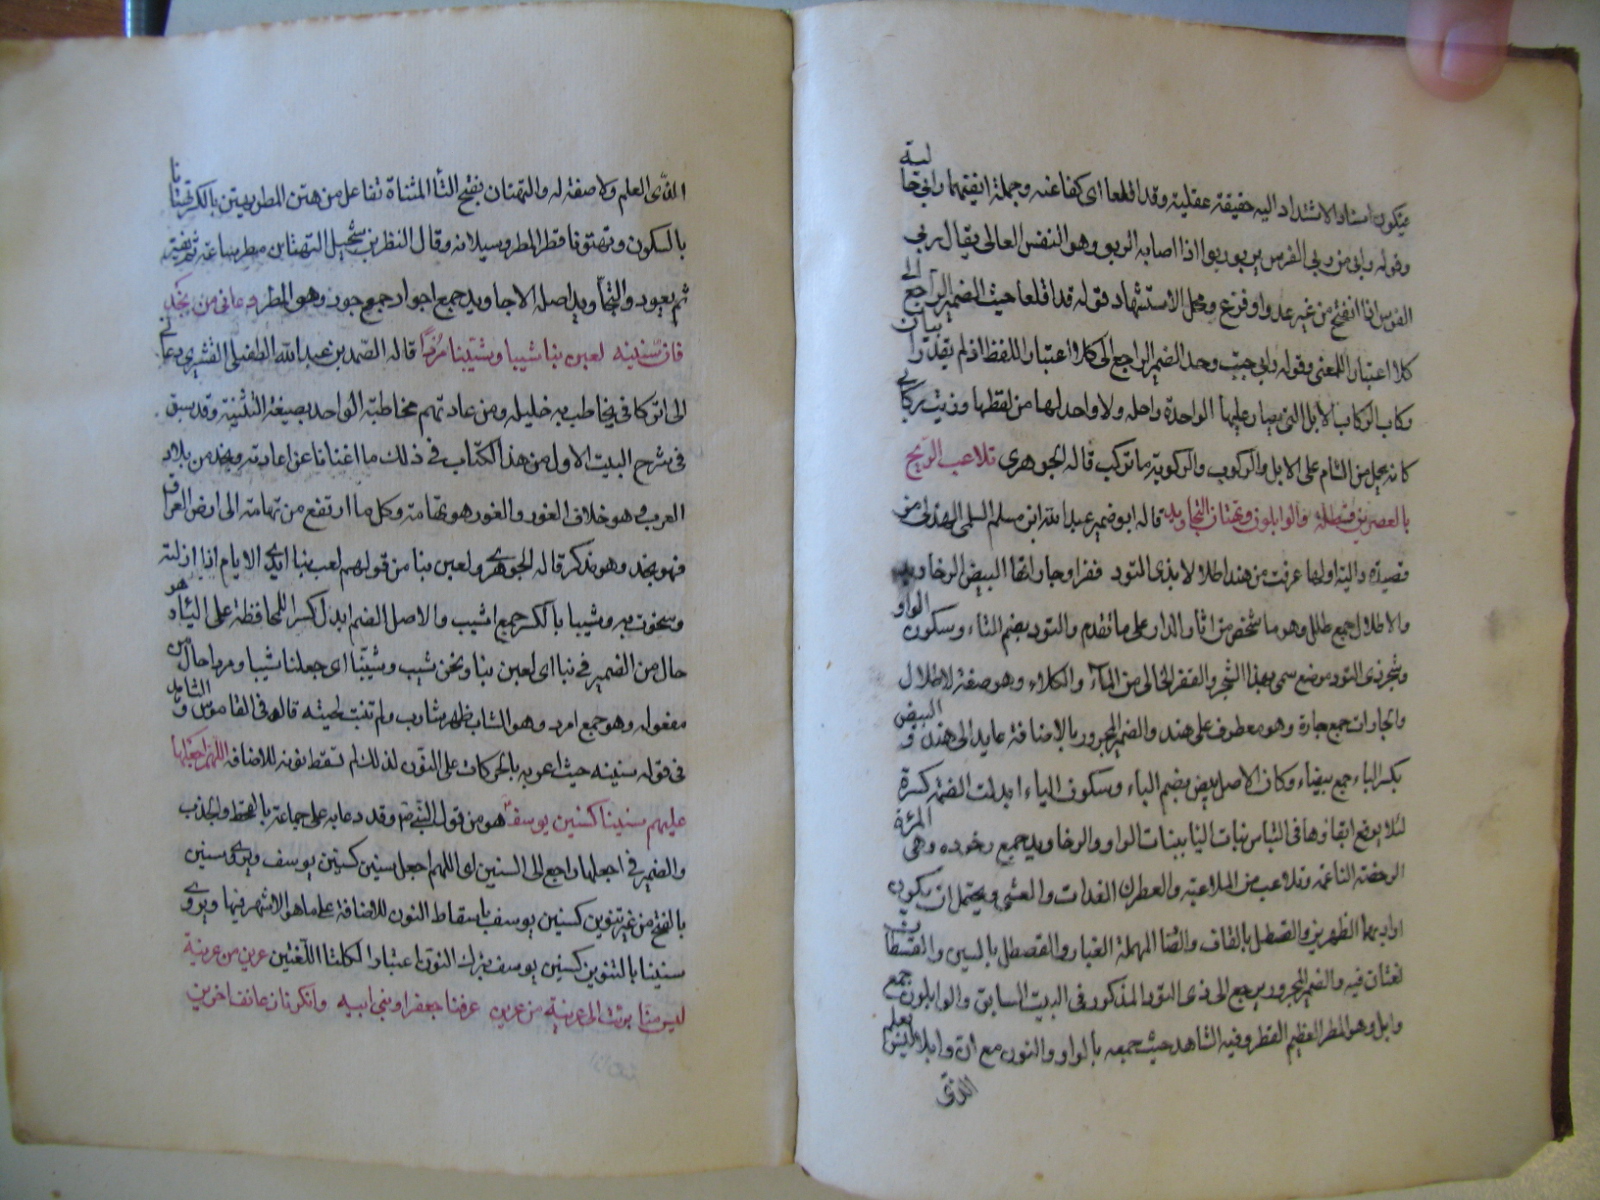 فيكون اسناد الاشتداد اليه حقيقة عقلية وقد اقلعا اى كفا عنه وجملة انفيهما رابى حالية
وقوله رابى من ربى الفرس يربو ربوا اذا اصابه الربو وهو النفس العالى يقال ربى
الفرس اذا انتفخ من غير عدو او فزع ومحل الاستشهاد قوله قد اقلعا حيث الضمير الراجع الى
كلا اعتبار المعنى وقوله رابى حيث وحد الضمير الراجع الى كلا اعتبار اللفظ
ركاب الركاب الابل التى يسار عليها الواحدة راحلة ولا واحد لها من لفظها وزيت ركابى
كانه يحمل من الشام على الابل والركوب والركوبة ما تركب قاله الجوهرى تلاعب الريح
بالعصرين قسطله والوابلون وتهتان التجاويد قاله ابو صخر عبد الله ابن مسلم السلمى الهذلى من
قصيدة دالية اولها عرفت من هند اطلالا بذى التود قفرا وجاراتها البيض الرخاويد
والاطلال جمع طلل وهو ما شخص من اثار الدار على ما تقدم والتود بضم التاء وسكون الواو
شجر وذى التود موضع سمى بهذا الشجر والقفر الخالى من الماء والكلاء وهو صفة لاطلال
وجارات جمع جارة وهو معطوف على هند والضمير المجرور بالاضافة عايد الى هند والبيض
بكسر الباء جمع بيضاء وكان الاصل بيض بضم الباء وسكون الياء ابدلت الضمة كسرة
الواو والرخاويد جمع رخوده وهى المرءة
الرخصة الناعمة وتلاعب من الملاعبة والعصران الغداة والعشى ويحتمل ان يكون
اراد بهما الظهرين والقسطل بالقاف والطا المهملة الغبار والقصطل بالسين والقسطال
لغتان فيه والضمير المجرور يرجع الى ذى التود المذكور فى البيت السابق والوابلون جمع
وابل وهو المطر العظيم القطر وفيه الشاهد حيث جمعه بالواو والنون مع ان وابلا ليس بعلم
الذى
العلم ولا صفة له والتهتان بفتح التا المثناة تفاعل من هتن المطر يهتن بالكسر تهتانا
بالسكون وتهتونا قطر المطر وسيلانه وقال النظر بن شميل التهتان مطر ساعة ثم يفتر
ثم يعود والتجاويد اصله الاجاويد جمع اجواد جمع جود وهو المطر دعانى من نجد
فان سنينه لعبن بنا شيبا وشيبننا مردا قاله الصمد بن عبد الله الطفيلى القشيرى دعانى
اى اتركانى يخاطب به خليله ومن عادتهم مخاطبة الواحد بصيغة التثنية وقد سبق
فى شرح البيت الاول من هذا الكتاب فى ذلك ما اغنانا عن اعادته ونجد من بلاد
العرب وهو خلاف الغور والغور هو تهامة وكل ما ارتفع من تهامة الى ارض العراق
فهو نجد وهو مذكر قاله الجوهرى ولعبن بنا من قولهم لعب بنا ايدى الايام اذا اذلته
وسخرت به وشيبا بالكسر جمع اشيب والاصل الضم ابدل كسرا للمحافظة على الياء هو
حال من الضمير فى بنا اى لعبن بنا ونحن شيب وشيبننا اى جعلننا شيبا ومردا حال من
مفعوله وهو جمع امرد وهو الشاب ظهر شاربه ولم تنبت لحيته قاله فى القاموس والشاهد
فى قوله سنينه حيث اعربه بالحركات على النون لذلك لم تسقط نونه للاضافة اللهم اجعلها
عليهم سنينا كسنين يوسف هو من قول النبى وقد دعا به على جماعة بالقحط والجذب
والضمير فى اجعلها راجع الى السنين اى اللهم اجعل سنين كسنين يوسف ويروى سنين
بالفتح من غير تنوين كسنين يوسف باسقاط النون للاضافة على ما هو الاشهر فيها ويروى
سنينا بالتنوين كسنين يوسف بترك النون اعتبارا لكلتا اللغتين عرين من عرينة
ليس منا برئت الى عرينة من عرين عرفنا جعفرا وبنى ابيه وانكرنا زعانف اخرين